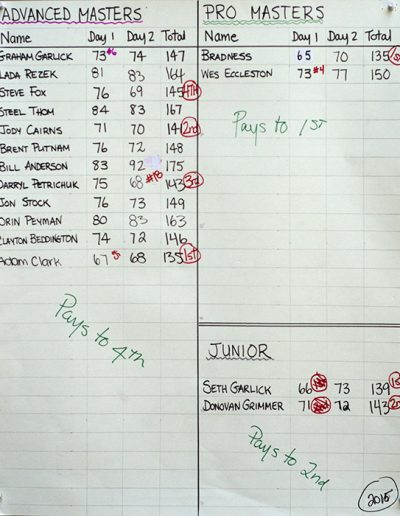 ADVANCED MASTERS
Name Day 1 Day 2 Total
GRAHAM GARLICK 73 #6 74 147
LADA REZEK 81 83 164
STEVE FOX 76 69 145 4TH
STEEL THOM 84 83 167
JODY CAIRNS 71 70 141 2nd
BRENT PUTNAM 76 72 148
BILL ANDERSON 83 92 175
DARRYL PETRICHUK 75 68 #18 143 3rd
JON STOCK 76 73 149
ORIN PEYMAN 80 83 163
CLAYTON BEDDINGTON 74 72 146
Adam Clark 67 68 135 1st
Pays to 4TH
PRO MASTERS
Name Day 1 Day 2 Total
BRADNESS 65 70 135
WES ECCLESTON 73 #4 77 150
Pays to 1ST
JUNIOR
SETH GARLICK 66 73 139
DONOVAN GRIMMER 71 72 143
Pays to 2nd
2015